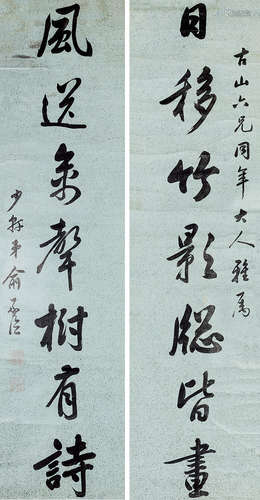 古山六兄同年大人雅屬
日移竹影牕皆畫
風送禽聲樹有詩
少軒弟俞